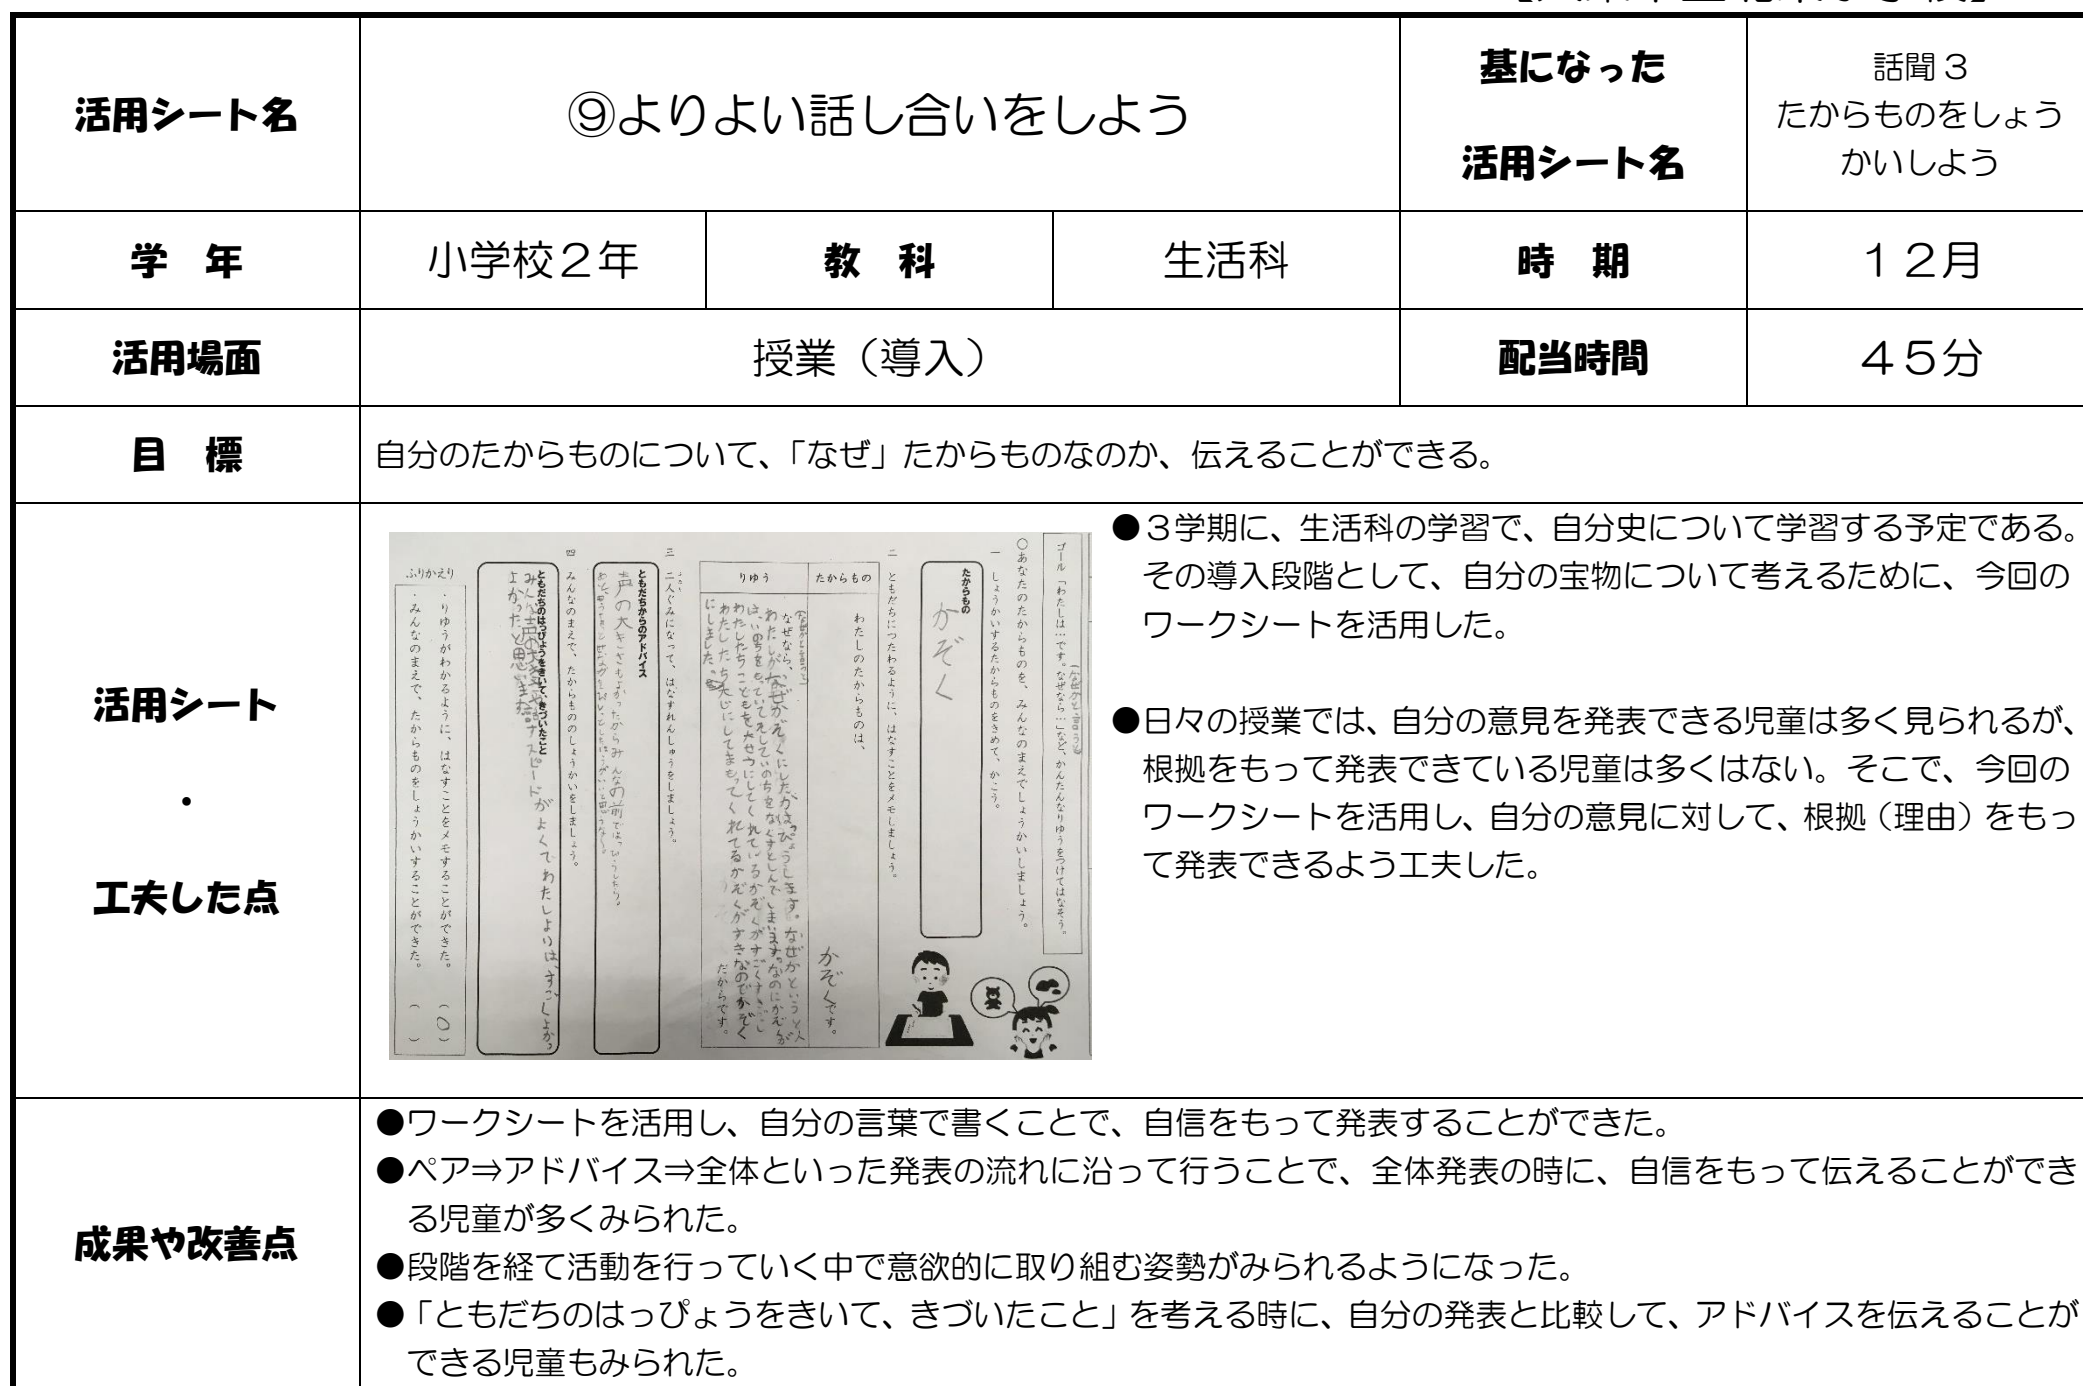 活用シート名
⑨よりよい話し合いをしよう
基になった
活用シート名
話聞３
たからものをしょう
かいしよう
学　年
小学校２年
教　科
生活科
時　期
１２月
活用場面
授業（導入）
配当時間
４５分
目　標
自分のたからものについて、「なぜ」たからものなのか、伝えることができる。
活用シート
・
工夫した点
ゴール「わたしは…です。なぜなら…」など、かんたんなりゆうをつけてはなそう。
〇あなたのたからものを、みんなのまえでしょうかいしましょう。
一　しょうかいするたからものをきめて、かこう。
たからもの
かぞく
二　ともだちにつたわるように、はなすことをメモしましょう。
たからもの
わたしのたからものは、
かぞくです。
りゆう
なぜなら、
だからです。
三　二人ぐみになって、はなすれんしゅうをしましょう。
ともだちからのアドバイス
声の大きさもよかったからみんなの前では
四　みんなのまえで、たからもののしょうかいをしましょう。
ともだちのはっぴょうをきいて、きづいたこと
スピードがよくてわたしよりは、すごくよかっ
よかったと思いました
ふりかえり
・りゆうがわかるように、はなすことをメモすることができた。（〇）
・みんなのまえで、たからものをしょうかいすることができた。（　）
●３学期に、生活科の学習で、自分史について学習する予定である。
その導入段階として、自分の宝物について考えるために、今回の
ワークシートを活用した。
●日々の授業では、自分の意見を発表できる児童は多く見られるが、
根拠をもって発表できている児童は多くはない。そこで、今回の
ワークシートを活用し、自分の意見に対して、根拠（理由）をもっ
て発表できるよう工夫した。
成果や改善点
●ワークシートを活用し、自分の言葉で書くことで、自信をもって発表することができた。
●ペア⇒アドバイス⇒全体といった発表の流れに沿って行うことで、全体発表の時に、自信をもって伝えることができ
る児童が多くみられた。
●段階を経て活動を行っていく中で意欲的に取り組む姿勢がみられるようになった。
●「ともだちのはっぴょうをきいて、きづいたこと」を考える時に、自分の発表と比較して、アドバイスを伝えることが
できる児童もみられた。